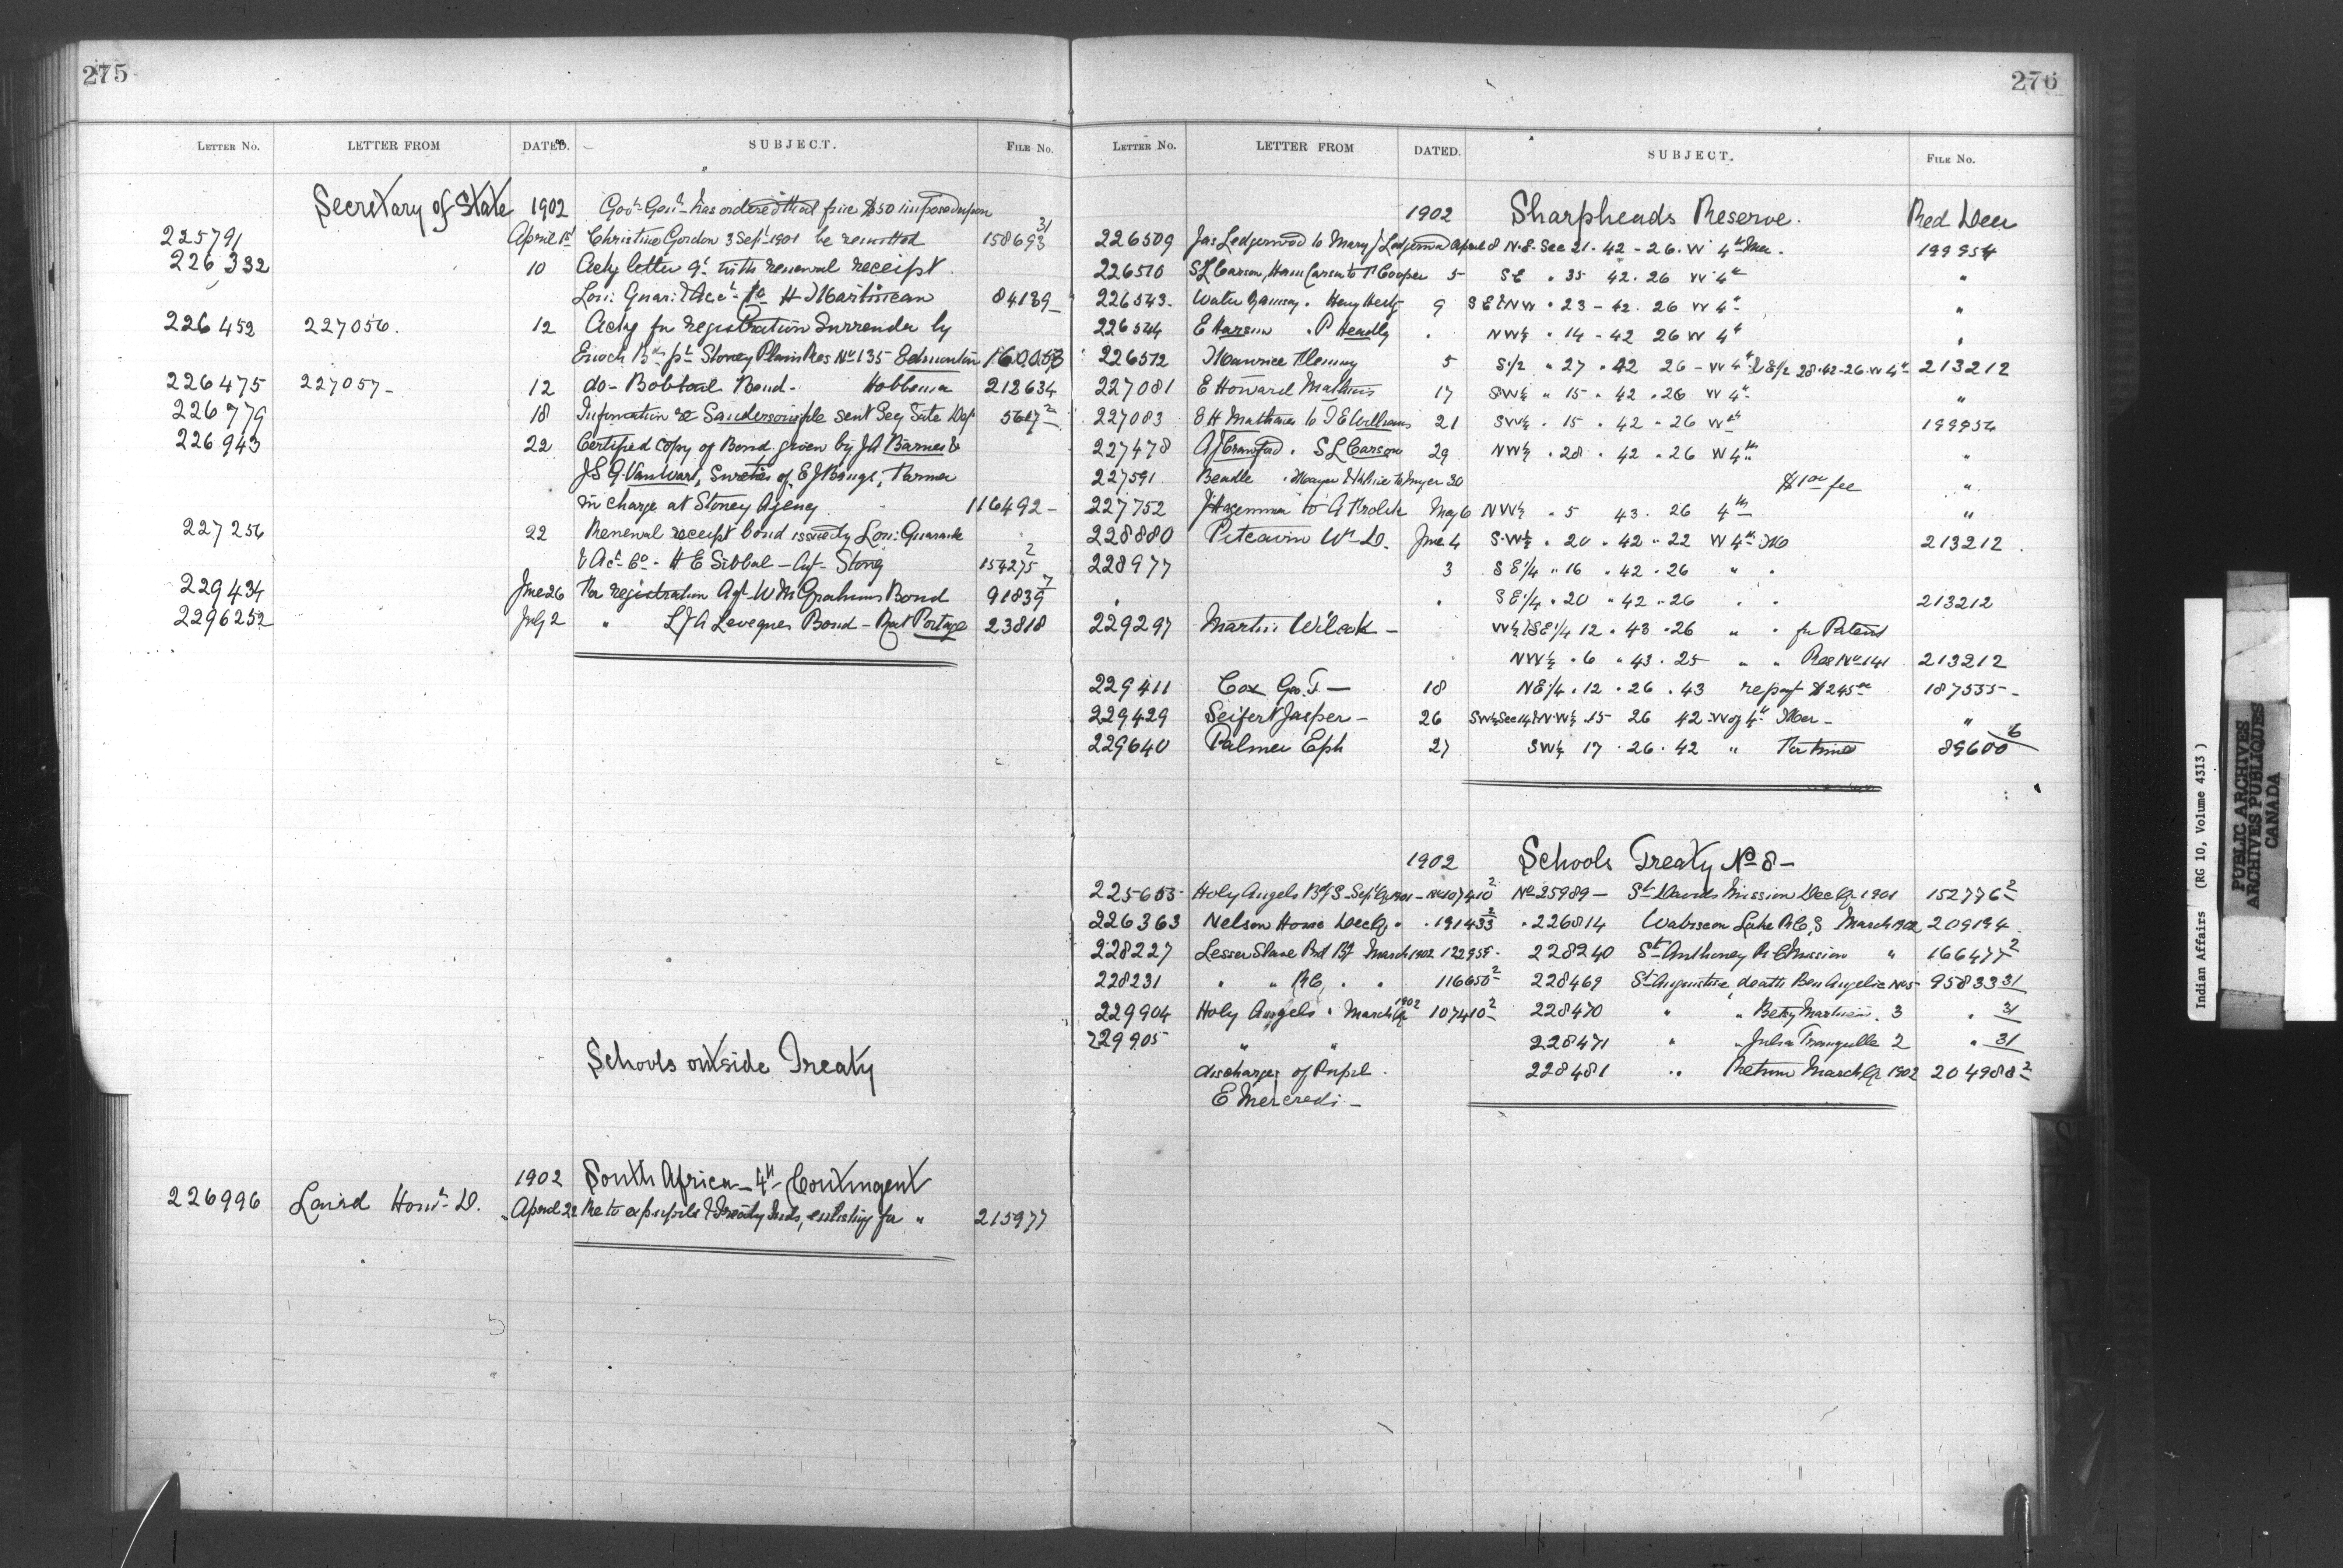 275
LETTER No. LETTER FROM DATED. SUBJECT. FILE No.
Secretary of State 1902 Govr Genl has ordered that fine $50 imposed upon
225791 April 1st Christine Gordon 3 Sept 1901 be remitted 158693 31
226332 10 Ackg letter 9t with renewal receipt
Lon: Guar: & Acct Co H Martineau 84139
226452 227056. 12 Ackg for registration Surrender by
Enoch Bd pt Stoney Plain Res No 135 Edmonton 160053
226475 227057 - 12 do - Bobtail Band - Hobbema 212634
226779 18 Information re sent Secy State Dept 5647 2
226943 22 Certified copy of Bond given by JA Barnes &
J.S.G. VanWart, Sureties of E J Bangs, Farmer
in charge at Stoney Agency 116492 -
227256 22 Renewal receipt bond issued by Lon: Guarante
& Act Co - H E Sibbald - Agt - Stony 154275 2
229434 June 26 For registration Agt W M Grahams Bond 91839 7
229625 2 July 2 " L J A Leveques Bond - Rat Portage 23818
Schools outside Treaty
1902 South Africa - 4th Contingent
226996 Laird Honr D. April 22 Re to ex pupils & Treaty Inds, enlisting for " 215977
276
LETTER No. LETTER FROM DATED. SUBJECT. FILE No.
1902 Sharpheads Reserve. Red Deer
226509 Jas Ledgerwood to Mary J Ledgerwood April 8 N.E. Sec 21 - 42 - 26 - W 4th Mer. 199954
226510 S L Carson, to P Cooper 5 SE " 35 42. 26 W 4th "
226543. Walter Ramsay. Henry 9 SE & NW " 23 - 42. 26 W 4th "
226544 E Larsen . P Headly . NW¼ " 14 - 42 26 W 4th "
226572 Maurice Fleming 5 S½ " 27 . 42 26 - W 4th & E½ 28-42-26-W 4th 213212
227081 E Howard Mathews 17 SW¼ " 15 . 42 . 26 W 4th "
227083 E H Mathews to J E Williams 21 SW¼ . 15 . 42 . 26 W 4th 199954
227478 A J Crawford . S L Carson 29 NW¼ . 28 . 42 . 26 W 4th "
227591 Beadle . to Myer 30 $1 00 fee "
227752 J Hageman to A May 6 NW¼ . 5 43 . 26 4th "
228880 Pitcairn Wm D. June 4 S.W¼ . 20 . 42 . 22 W 4th M 213212 .
228977 3 SE¼ " 16 . 42 . 26 " .
. SE¼ . 20 " 42 . 26 . . 213212
229297 Martin Wilcok - W½ & SE¼ 12 . 43 . 26 " . for Patent
NW¼ . 6 " 43 . 25 " " Res No 141 213212
229411 Cox Geo. T - 18 NE¼ . 12 . 26 . 43 re pay $245 00 187555 -
229429 Seifert Jasper - 26 SW¼ Sec 14 & N.W¼ 15 26 42 - W of 4th Mer - "
229640 Palmer Eph 27 SW¼ 17 . 26 . 42 " For time 89600 6
1902 Schools Treaty No 8 -
225653 Holy Angels Bdg S - Sept Qr 1901 - No 107410 2 No 25989 - St Davids Mission Dec Qr 1901 152776 2
226363 Nelson House Dec Qr " . 191433 2 . 226814 Wabiscow Lake R.C.S March 1902 209194
228227 Lesser Slave Prot Bg March 1902 122955 . 228240 St Anthoney R C Mission " 166477 2
228231 " " RC, . . 116650 2 228469 St Augustine, death Ben Angelie No 5 95833 31
229904 Holy Angels " March Qr 1902 107410 2 228470 " " Betsy Martineau . 3 . 31
229905 " " 228471 " " Julia Tranquille 2 " 31
discharge of Pupil . 228481 " Return March Qr 1902 204988 2
E Mercredi -
Indian Affairs (RG 10, Volume 4313)
PUBLIC ARCHIVES
ARCHIVES PUBLIQUES
CANADA